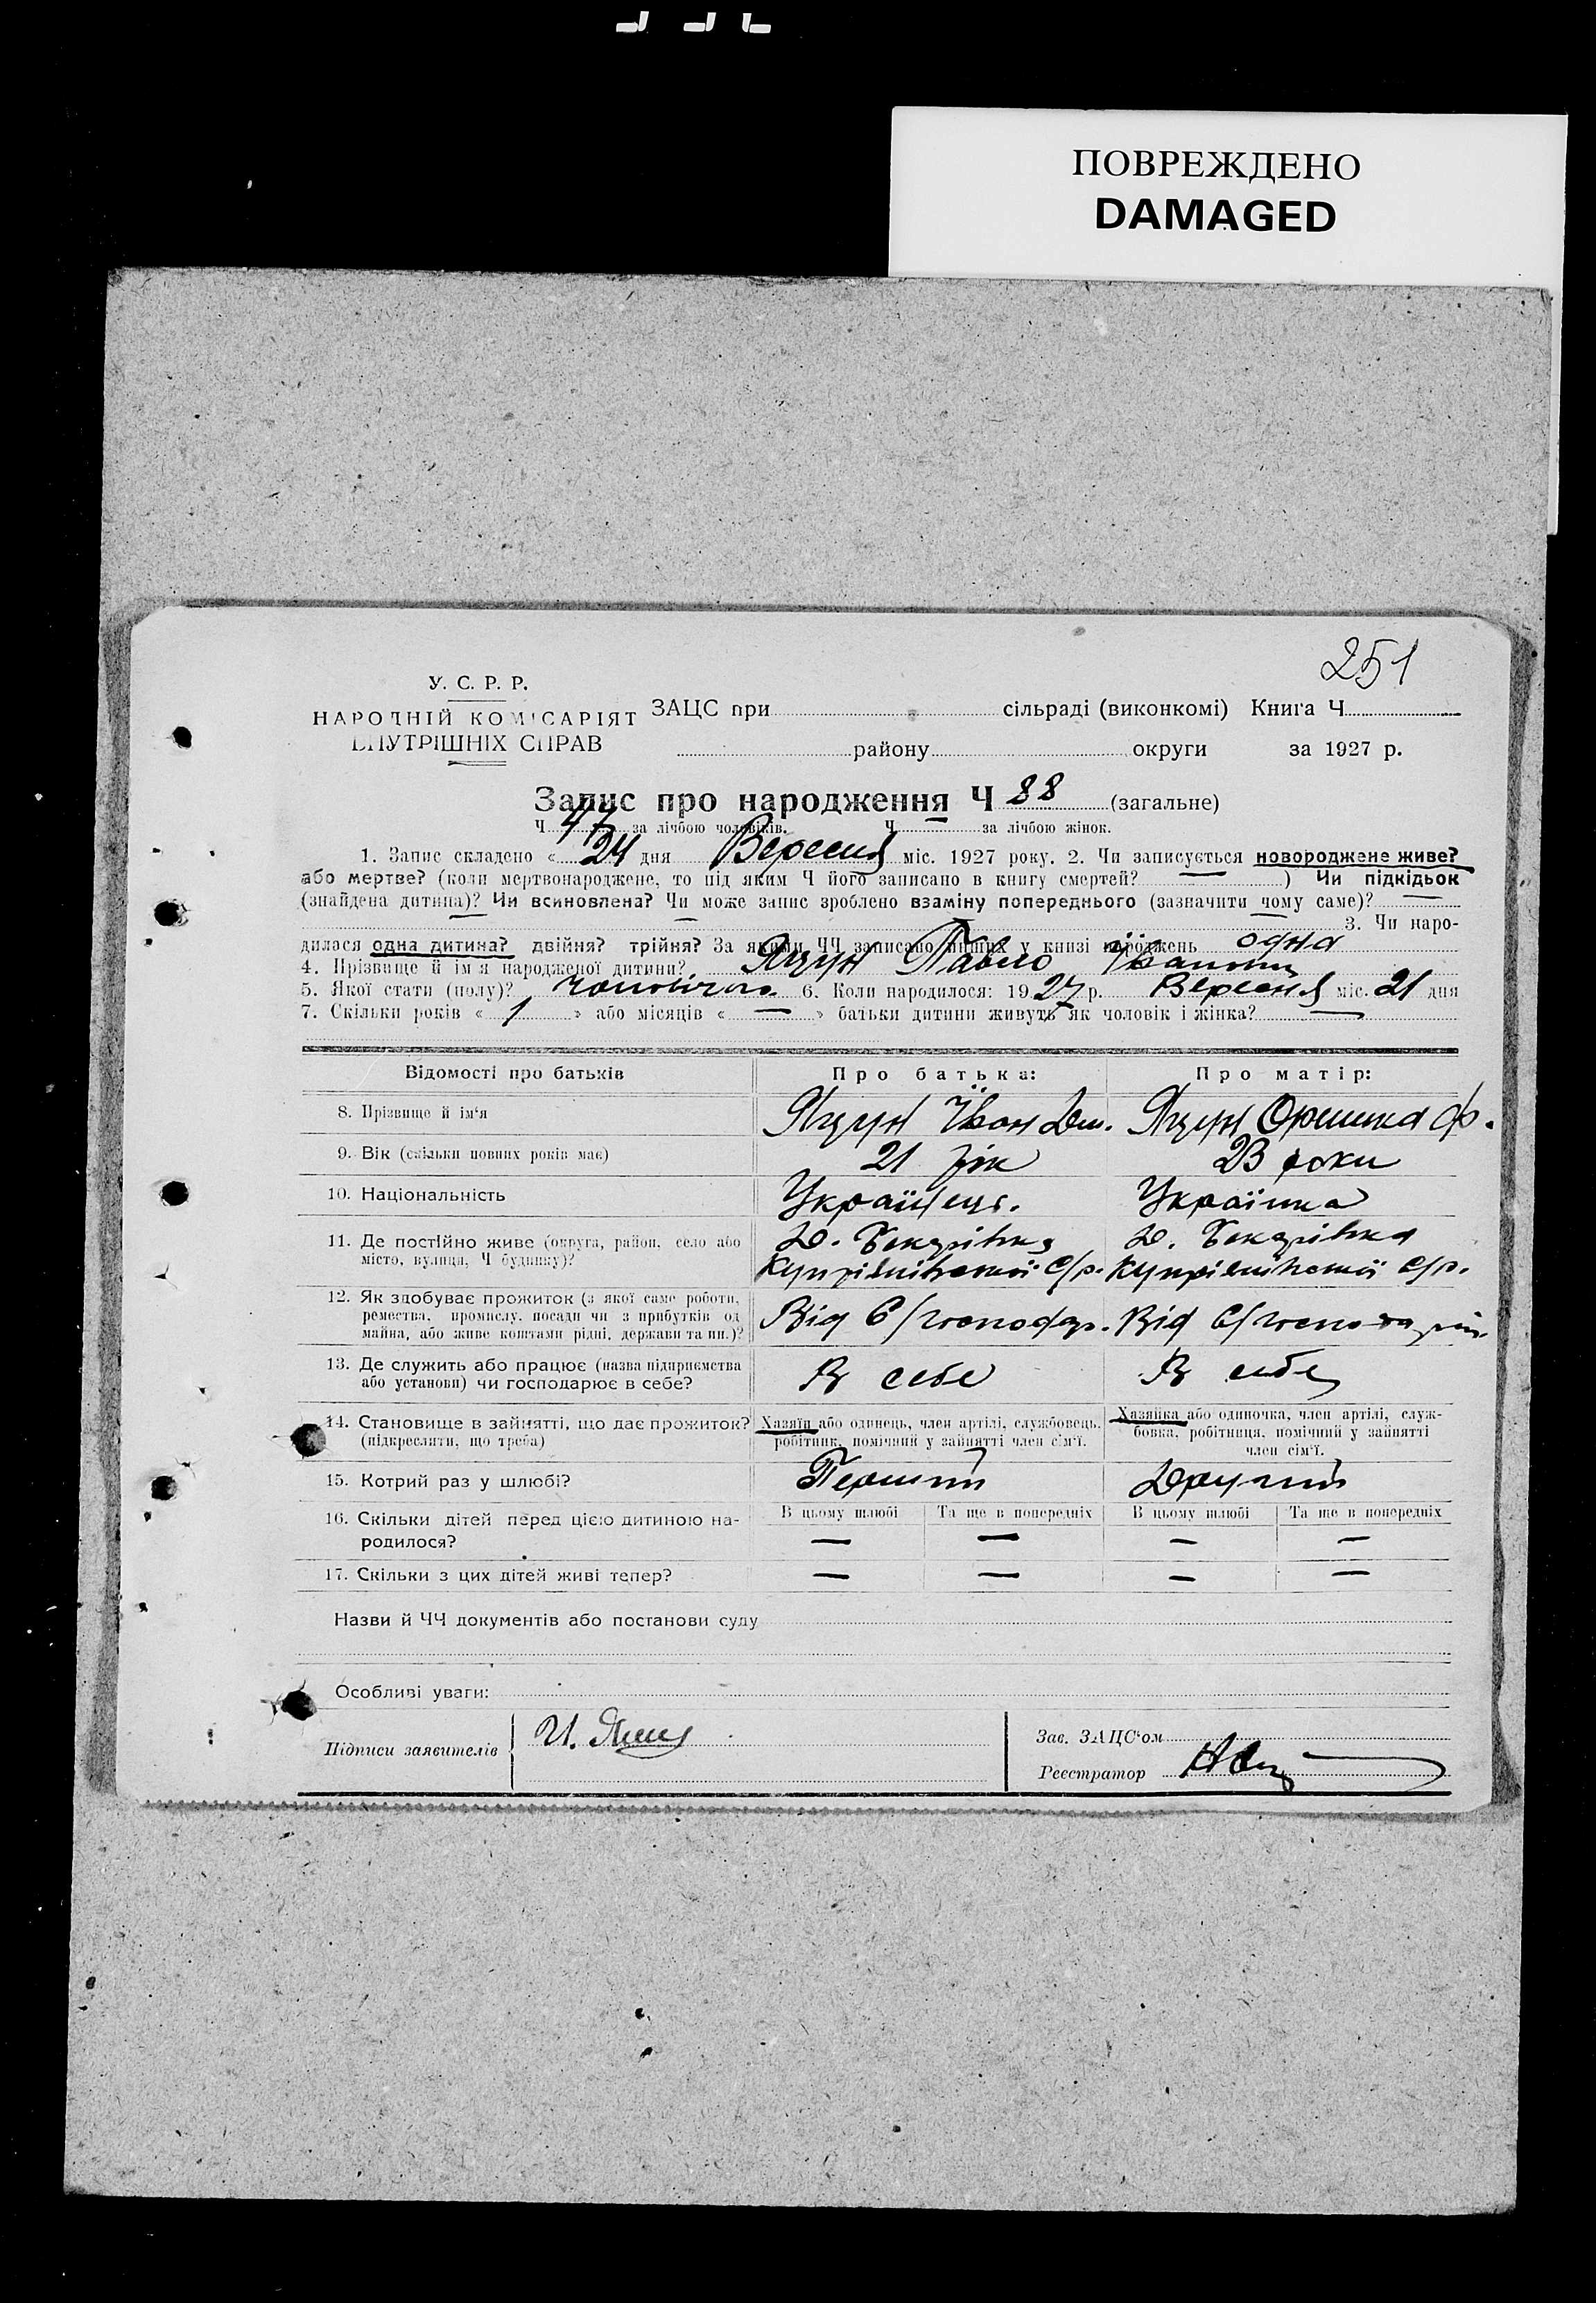 ПОВРЕЖДЕНО
DAMAGED
251
У. С. Р. Р.
НАРОДНІЙ КОМІСАРІЯТ
ВНУТРІШНІХ СПРАВ
ЗАЦС при сільраді (виконкомі) Книга Ч
району округи за 1927 р.
Запис про народження Ч 88 (загальне)
Ч 47 за лічбою чоловіків. Ч за лічбою жінок.
1. Запис складено « 24 дня Вересня міс. 1927 року. 2. Чи записується новороджене живе?
або мертве? (коли мертвонароджене, то під яким Ч його записано в книгу смертей? — ) Чи підкідьок
(знайдена дитина)? Чи всиновлена? Чи може запис зроблено взаміну попереднього (зазначити чому саме)? —
3. Чи наро-
дилася одна дитина? двійня? трійня? За якими ЧЧ записано інших у книзі народжень одна
4. Прізвище й ім'я народженої дитини? Яцун Павло Іванови
5. Якої стати (полу)? чоловічого 6. Коли народилося: 1927 р. Вересня міс. 21 дня
7. Скільки років « 1 » або місяців « — » батьки дитини живуть як чоловік і жінка? —
Відомості про батьків Про батька: Про матір:
8. Прізвище й ім'я Яцун Іван Дм. Яцун Оришка Ф.
9. Вік (скільки повних років має) 21 рік 23 роки
10. Національність Українець. Українка
11. Де постійно живе (округа, район, село або
місто, вулиця, Ч будинку)? Д. С/р. Д. С/р.
12. Як здобуває прожиток (з якої саме роботи,
ремества, промислу, посади чи з прибутків од
майна, або живе коштами рідні, держави та ин.)? Від С/господар. Від С/господар
13. Де служить або працює (назва підприємства
або установи) чи господарює в себе? В себе В себе
14. Становище в зайнятті, що дає прожиток?
(підкреслити, що треба)
Хазяїн або одинець, член артілі, службовець,
робітник, помічний у зайнятті член сім'ї.
Хазяйка або одиночка, член артілі, служ-
бовка, робітниця, помічний у зайнятті
член сім'ї.
15. Котрий раз у шлюбі? Перший Другий
16. Скільки дітей перед цією дитиною на-
родилося?
В цьому шлюбі Та ще в попередніх В цьому шлюбі Та ще в попередніх
— — — —
17. Скільки з цих дітей живі тепер? — — — —
Назви й ЧЧ документів або постанови суду
Особливі уваги:
Підписи заявителів И.
Зав. ЗАЦС'ом
Реєстратор